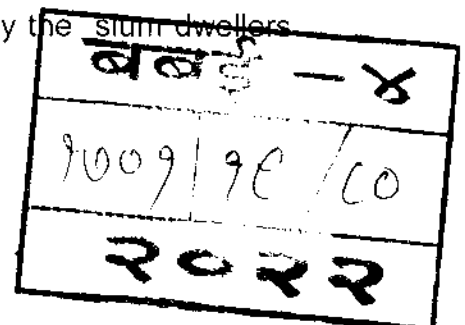 y the slum dwellers
बबई - ४
१७०१ | १९ / ८०
२०२२